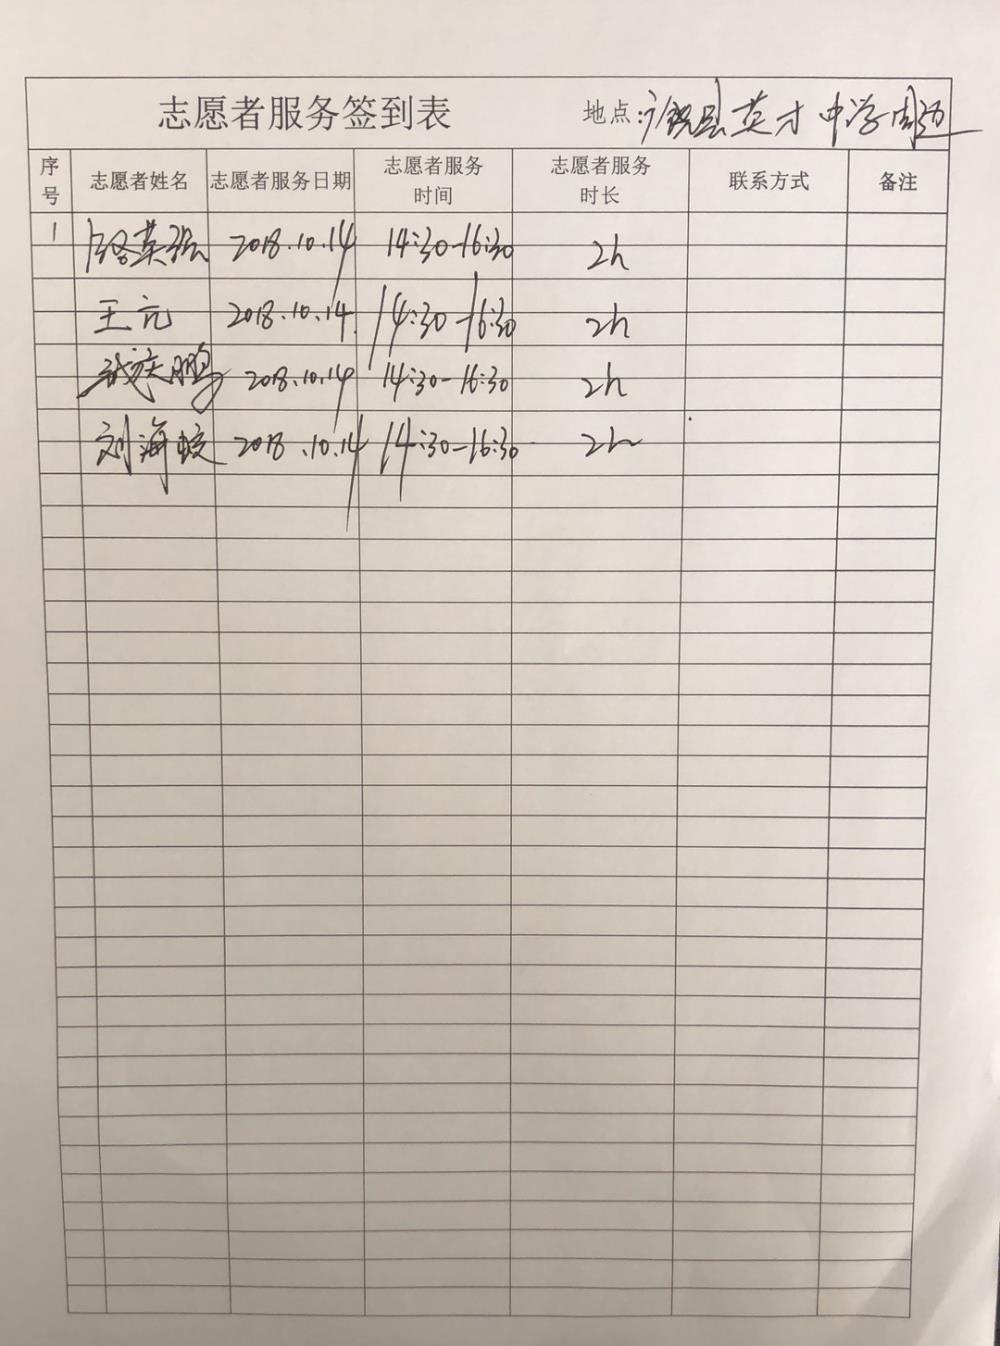 志愿者服务签到表 地点: 县英才中学周边
序号 志愿者姓名 志愿者服务日期 志愿者服务时间 志愿者服务时长 联系方式 备注
1 英 2018.10.14 14:30-16:30 2h
王元 2018.10.14 14:30-16:30 2h
鹏 2018.10.14 14:30-16:30 2h
刘海蛟 2018.10.14 14:30-16:30 2h